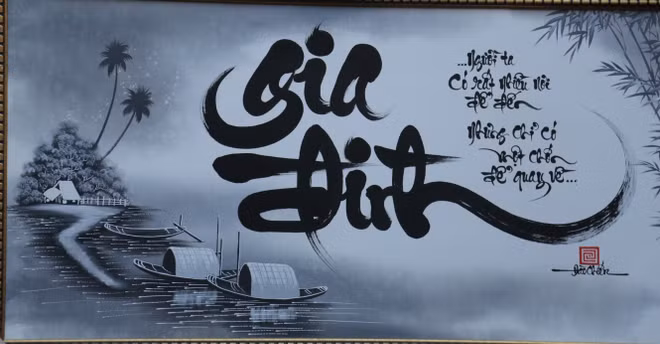 Gia
Đình
...Người ta
Có rất nhiều nơi
để đến
Nhưng chỉ có
một chốn
để quay về...